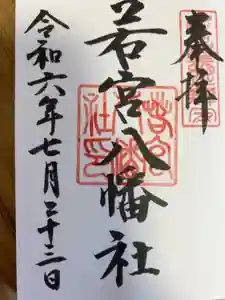 奉拝
若宮八幡社
令和六年七月二十二日